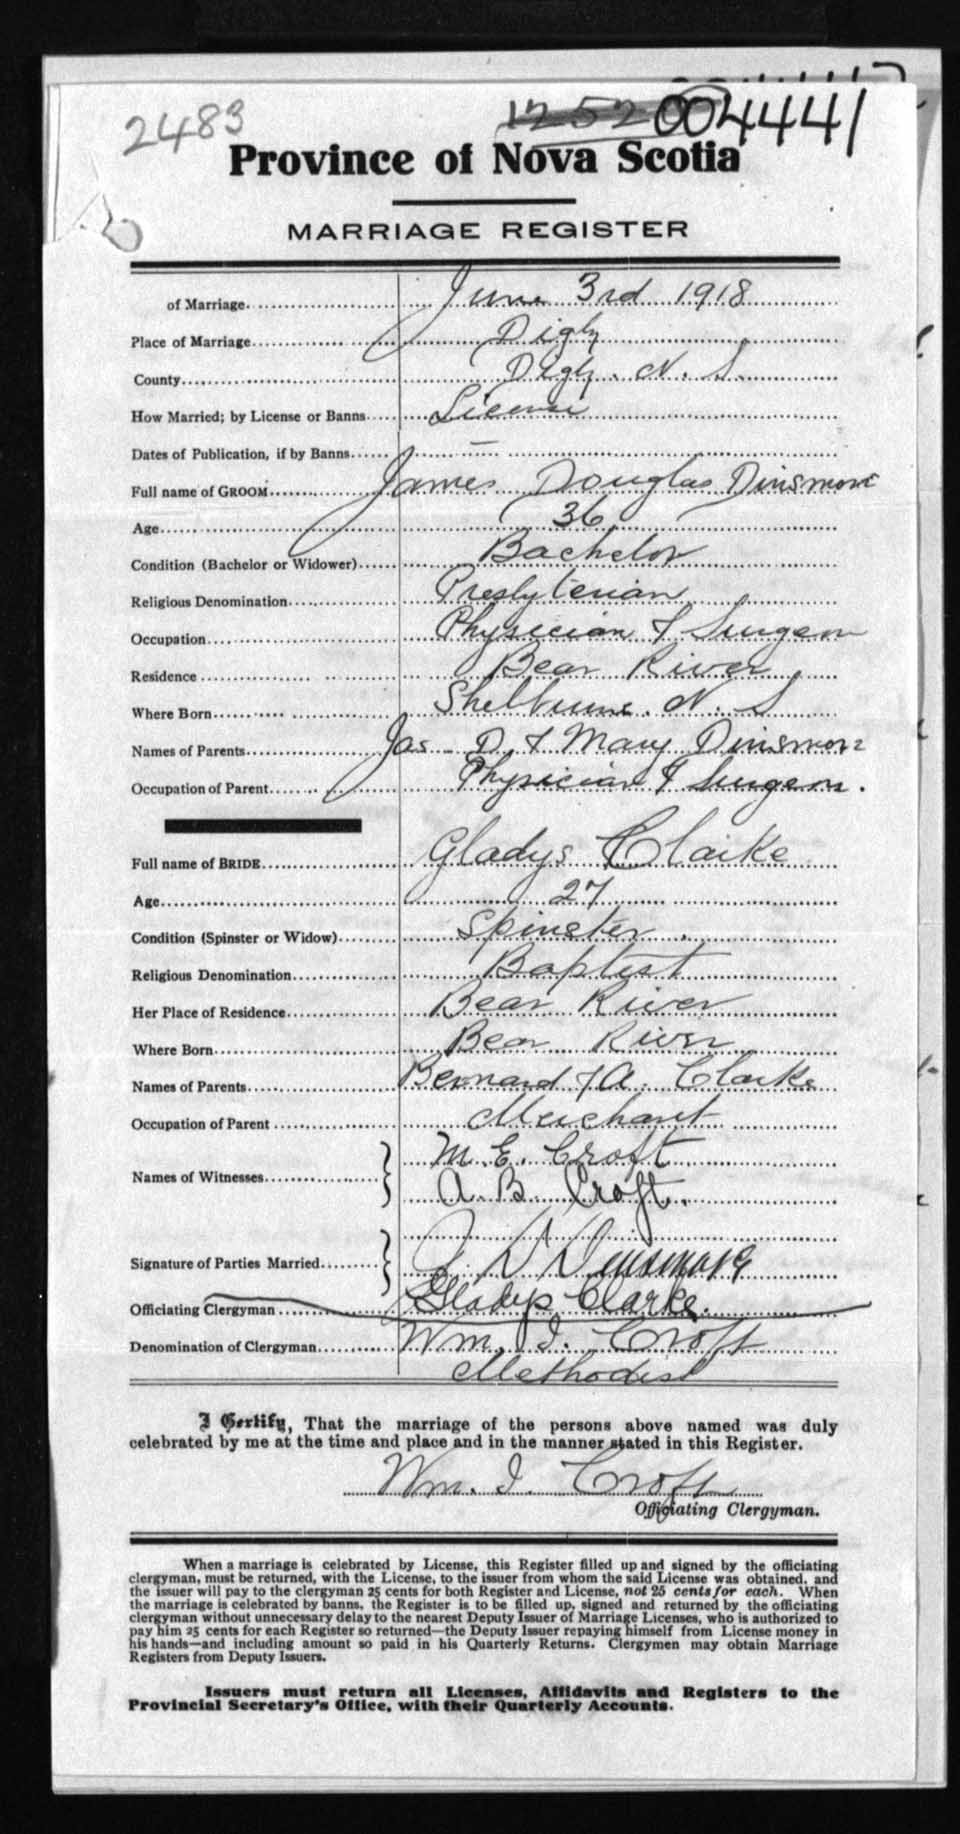 2483
1252 004441
Province of Nova Scotia
MARRIAGE REGISTER
of Marriage June 3rd 1918
Place of Marriage Digby
County Digby. N. S.
How Married; by License or Banns License
Dates of Publication, if by Banns —
Full name of GROOM James Douglas Dinsmore
Age 36
Condition (Bachelor or Widower) Bachelor
Religious Denomination Presbyterian
Occupation Physician & Surgeon
Residence Bear River
Where Born Shelburne. N. S
Names of Parents Jas. D. & Mary Dinsmore
Occupation of Parent Physician & Surgeon.
Full name of BRIDE Gladys Clarke
Age 27
Condition (Spinster or Widow) Spinster.
Religious Denomination Baptist
Her Place of Residence Bear River
Where Born Bear River
Names of Parents Bernard & A. Clarke
Occupation of Parent Merchant
Names of Witnesses M. E. Croft
A. B. Croft.
Signature of Parties Married J. D. Dinsmore
Gladys Clarke.
Officiating Clergyman Wm. I. Croft
Denomination of Clergyman Methodist
I Certify, That the marriage of the persons above named was duly
celebrated by me at the time and place and in the manner stated in this Register.
Wm. I. Croft
Officiating Clergyman.
When a marriage is celebrated by License, this Register filled up and signed by the officiating
clergyman, must be returned, with the License, to the issuer from whom the said License was obtained, and
the issuer will pay to the clergyman 25 cents for both Register and License, not 25 cents for each. When
the marriage is celebrated by banns, the Register is to be filled up, signed and returned by the officiating
clergyman without unnecessary delay to the nearest Deputy Issuer of Marriage Licenses, who is authorized to
pay him 25 cents for each Register so returned—the Deputy Issuer repaying himself from License money in
his hands—and including amount so paid in his Quarterly Returns. Clergymen may obtain Marriage
Registers from Deputy Issuers.
Issuers must return all Licenses, Affidavits and Registers to the
Provincial Secretary's Office, with their Quarterly Accounts.